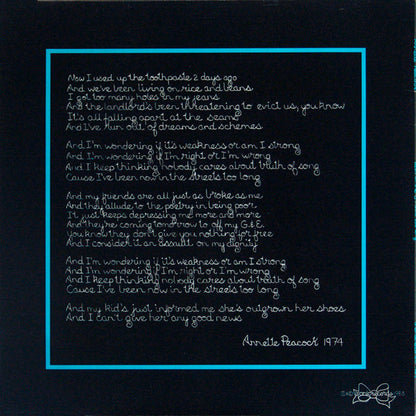 Now I used up the toothpaste 2 days ago
And we've been living on rice and beans
I got too many holes in my jeans
And the landlord's been threatening to evict us, you know
It's all falling apart at the seams
And I've run out of dreams and schemes
And I'm wondering if it's weakness or am I strong
And I'm wondering if I'm right or I'm wrong
And I keep thinking nobody cares about truth of song
Cause I've been now in the streets too long
And my friends are all just as broke as me
And they allude to the poetry in being poor
It just keeps depressing me more and more
And they're coming tomorrow to off my G.&E.
You know they don't give you nothing for free
And I consider it an assault on my dignity
And I'm wondering if it's weakness or am I strong
And I'm wondering if I'm right or I'm wrong
And I keep thinking nobody cares about truth of song
Cause I've been now in the streets too long
And my kid's just informed me she's outgrown her shoes
And I can't give her any good news
Annette Peacock 1974